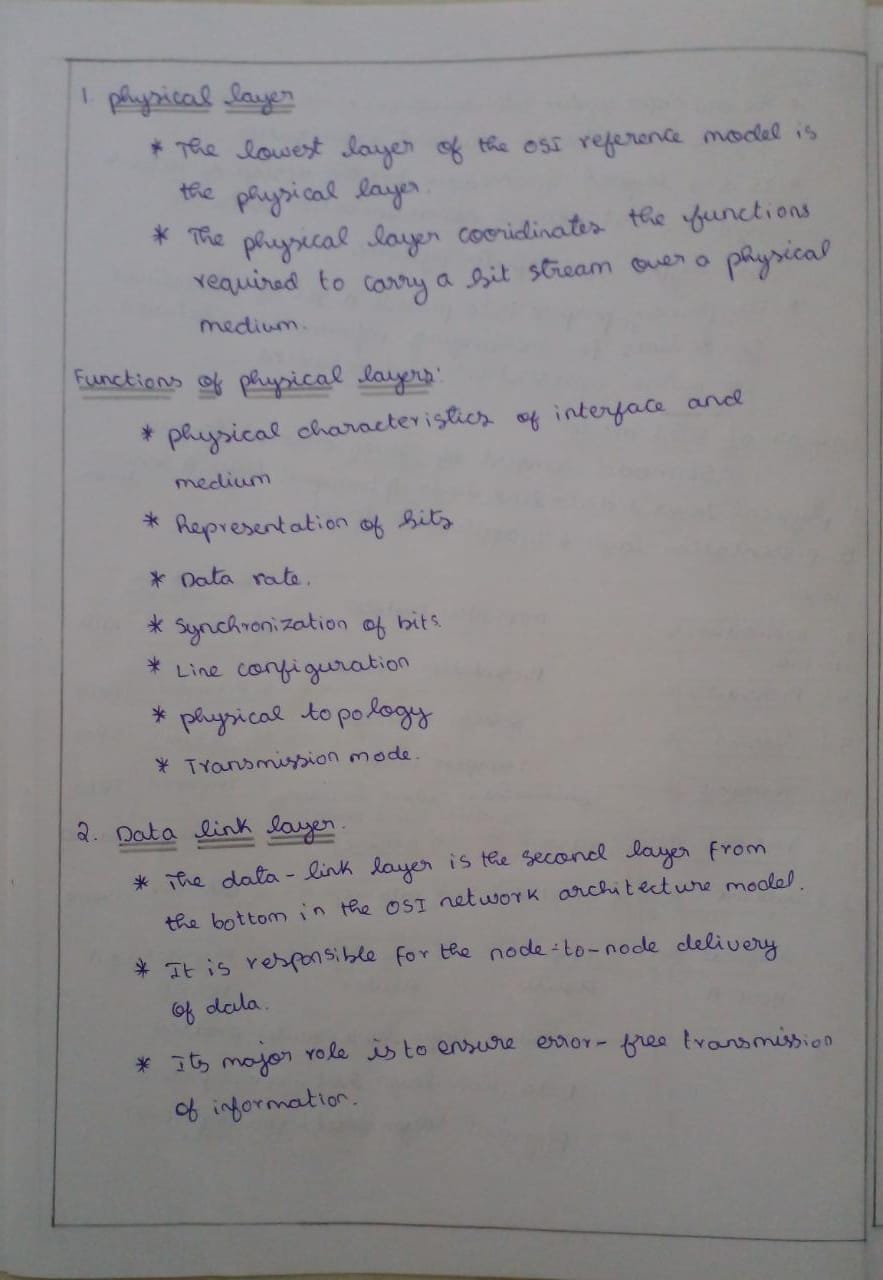 1. physical layer
* The lowest layer of the OSI reference model is
the physical layer.
* The physical layer cooridinates the functions
required to carry a bit stream over a physical
medium.
Functions of physical layers:
* physical characteristics of interface and
medium
* Representation of bits
* Data rate.
* Synchronization of bits.
* Line configuration
* physical topology
* Transmission mode.
2. Data link layer.
* The data-link layer is the second layer from
the bottom in the OSI network architecture model.
* It is responsible for the node-to-node delivery
of data.
* Its major role is to ensure error-free transmission
of information.